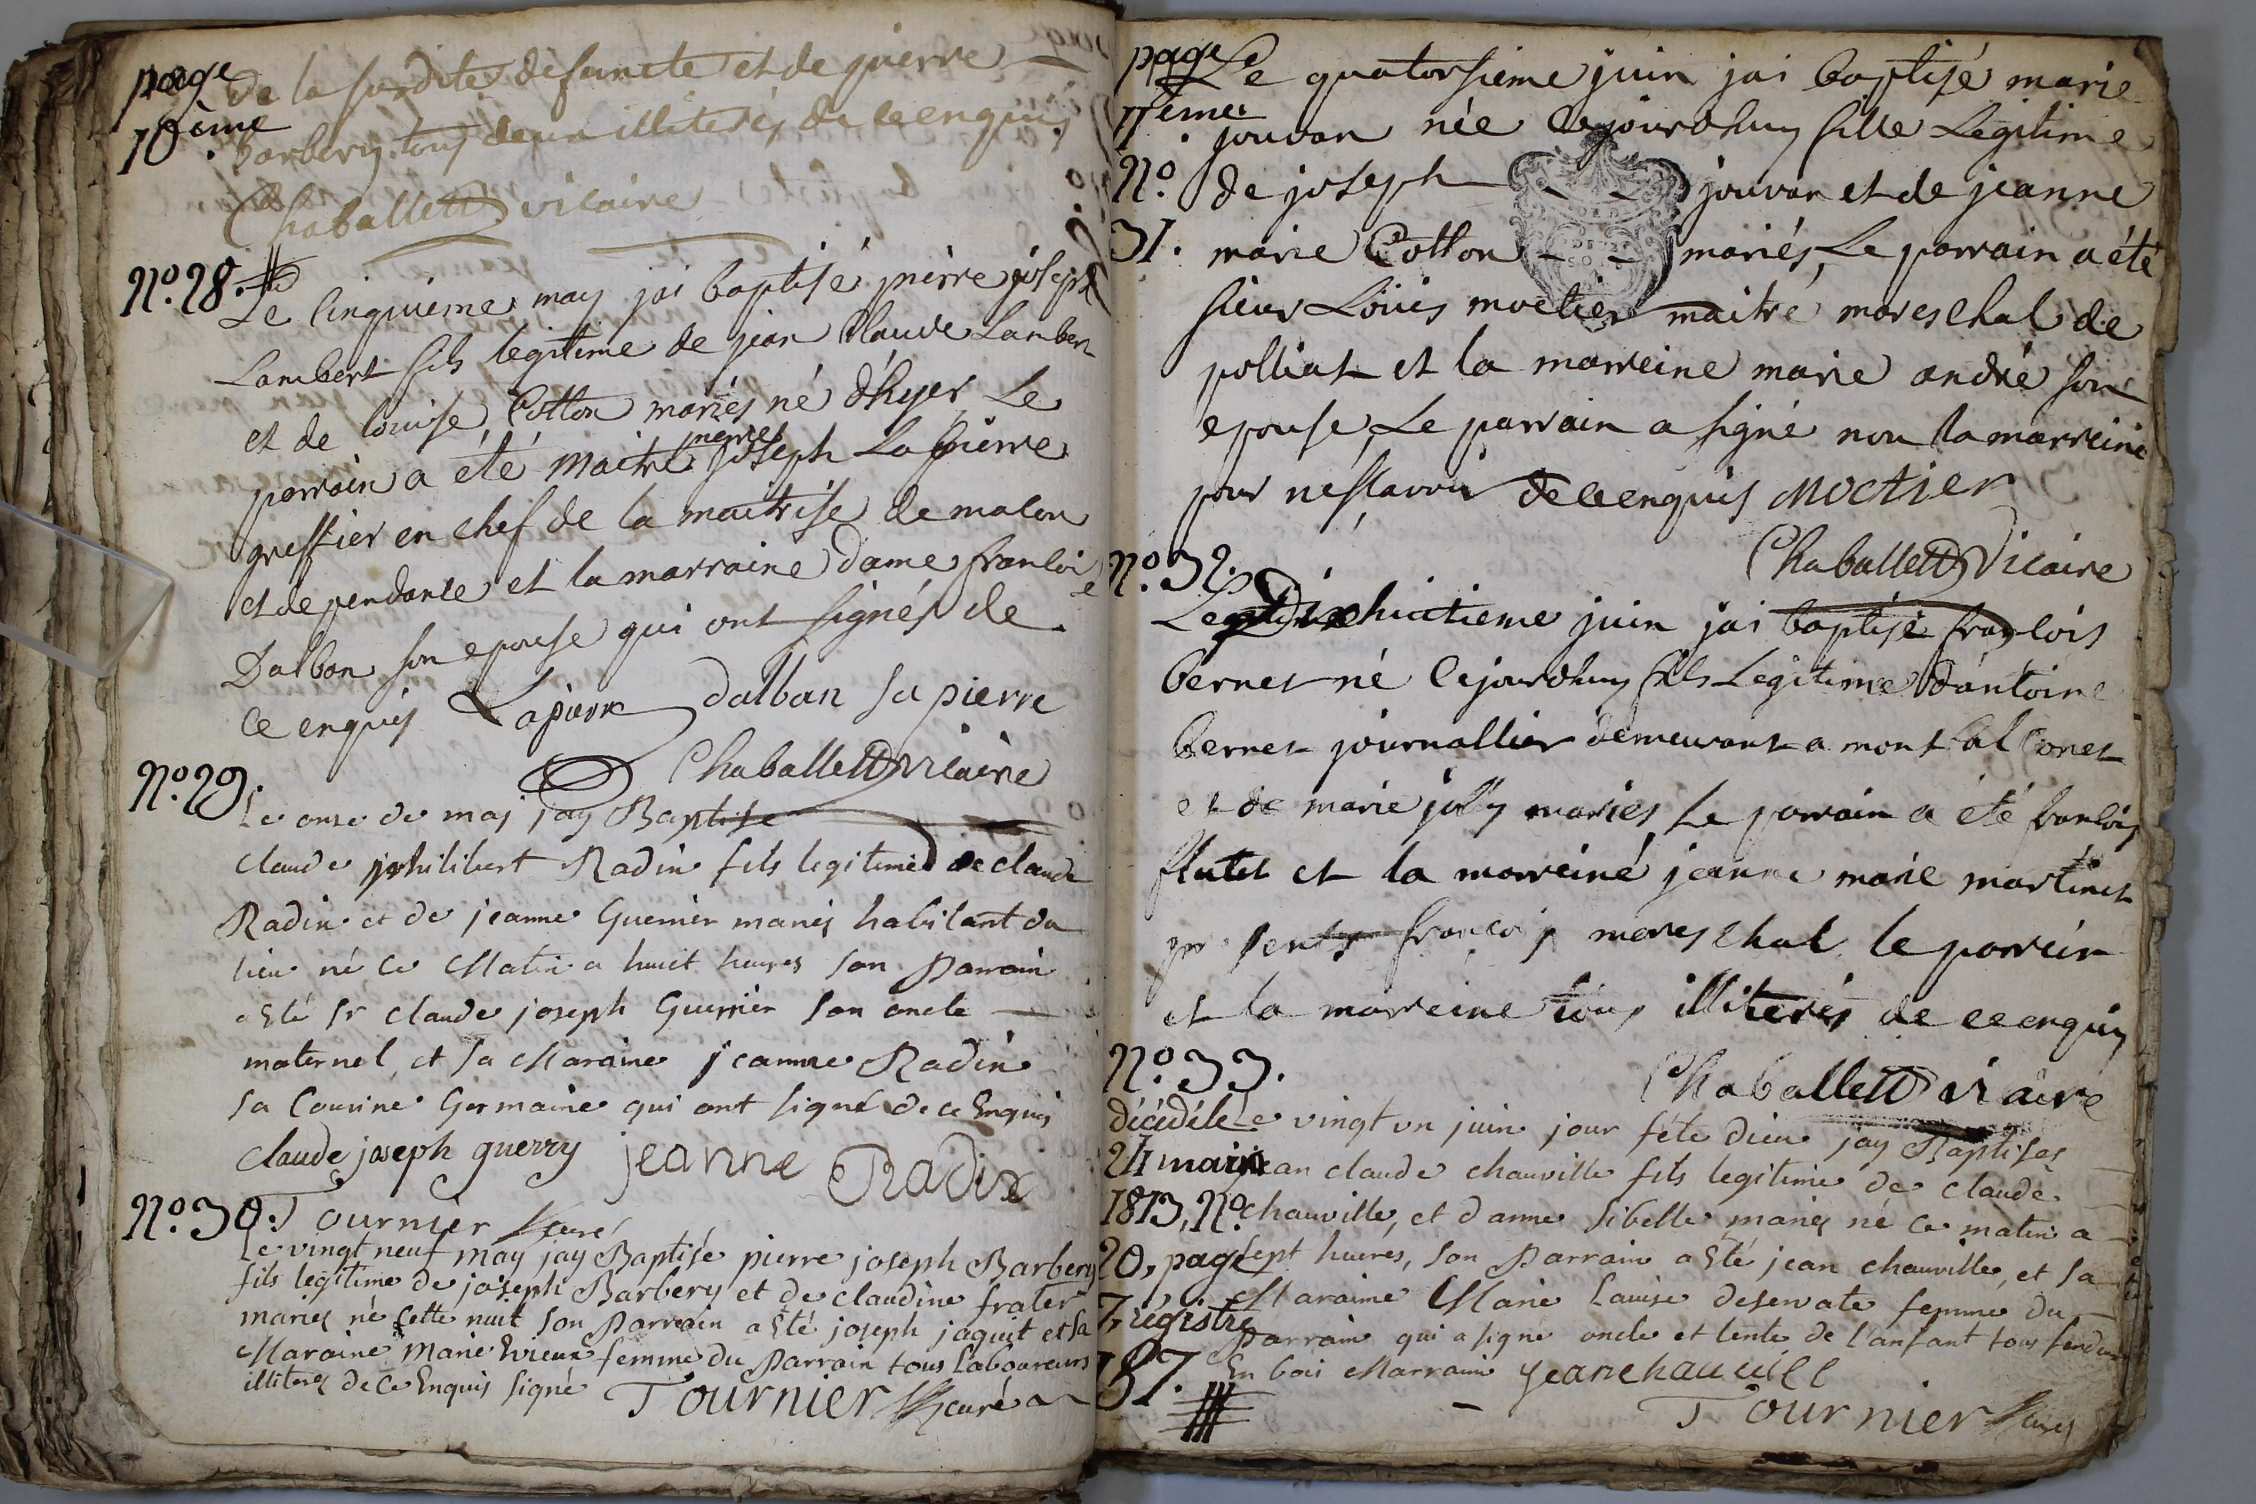 page
10ème
de la surdite defuncte et de pierre
barbery tous deux illiterés de ce enquis
Chaballett vicaire
N.º 28.
Le cinquieme may jai baptisé pierre joseph
Lambert fils legitime de jean claude Lambert
et de louise Cotton mariés né d'hyer Le
parrain a été maitre pierre joseph Lapierre
greffier en chef de la maitrise de
et dependance et la marraine dame francoise
Dalban son epouse qui ont signés de
ce enquis Lapierre dalban la pierre
Chaballett vicaire
N.º 29.
Le onze de may jay Baptise
claude philibert Radin fils legitime de claude
Radin et de jeanne Guerrier mariés habitant du
lieu né ce Matin a huit heures son Parrain
a Eté sr claude joseph Guerrier son oncle
maternel, et sa Maraine jeanne Radin
sa Cousine Germaine qui ont signé de ce Enquis
claude joseph guerry jeanne Radix
Tournier curé
N.º 30.
Le vingt neuf may jay Baptisé pierre joseph Barbery
fils legitime de joseph Barbery et de claudine frater
mariés né cette nuit son Parrain a Eté joseph jaquit et sa
Maraine Marie femme du Parrain tous Laboureurs
illiterés de ce Enquis signé Tournier curé
page
11ème
N.º
31.
Le quatorsieme juin jai baptisé marie
jouvan née cejourdhuy fille Legitime
de joseph jouvan et de jeanne
marie Cotton mariés, Le parrain a été
sieur Loüis moctier maitre mareschal de
polliat et la marreine marie andré son
epouse, Le parrain a signé non la marreine
pour ne scavoir de ce enquis moctier
Chaballett Vicaire
N.º 32.
Le Dixhuitieme juin jai baptisé francois
bernet né cejourdhuy fils Legitime d'antoine
bernet journallier demeurant a montfalconet
et de marie jolly mariés, Le parrain a été francois
flutet et la marreine jeanne marie martinet
presents françois mareschal le parrein
et la marreine tous illiterés de ce enquis
Chaballett vicaire
N.º 33.
décédé le
21 mai
1813, N.º
20, page
7, registre
137.
Le vingt un juin jour féte dieu jay Baptisé
jean claude chauville fils legitime de claude
chauville, et d'anne sibelle mariés né ce matin a
sept heures, son Parrain a Eté jean chauville, et sa
Maraine Marie Louise deservate femme du
Parrain qui a signé oncle et tente de l'anfant tous fendeur
En bois Marraine jean chauville
Tournier curé